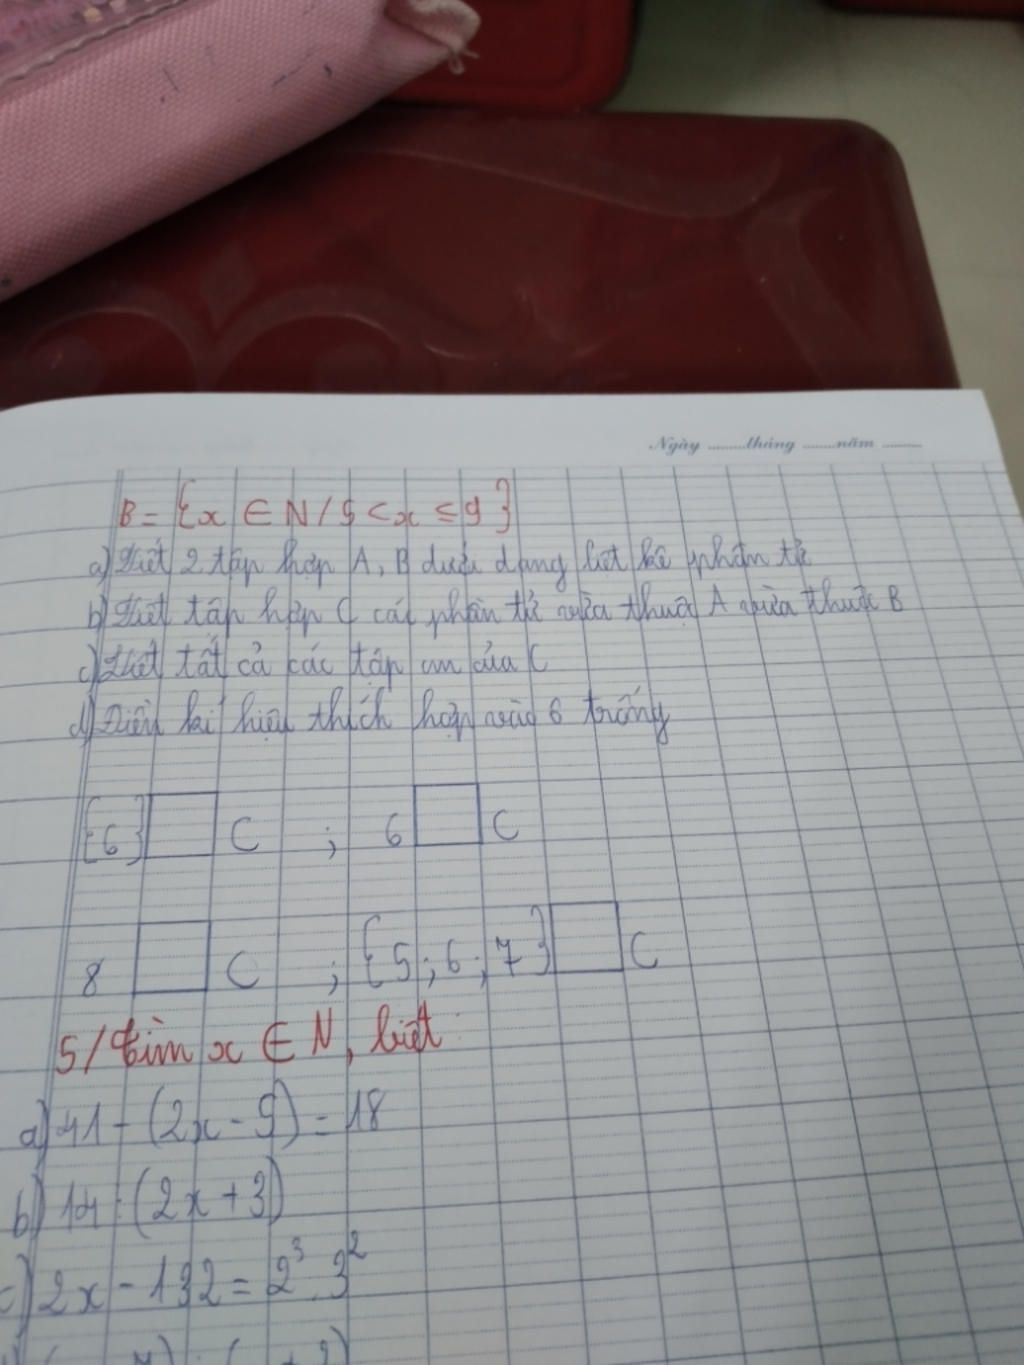 Ngày ........tháng ........năm ........
B = {x ∈ N / 5 < x ≤ 9}
a) Viết 2 tập hợp A, B dưới dạng liệt kê phần tử
b) Viết tập hợp C các phần tử vừa thuộc A vừa thuộc B
c) Viết tất cả các tập con của C
d) Điền kí hiệu thích hợp vào ô trống
{6} □ C ; 6 □ C
8 □ C ; {5; 6; 7} □ C
5/ Tìm x ∈ N, biết:
a) 41 - (2x - 9) = 18
b) 14 : (2x + 3)
c) 2x - 132 = 2³ . 3²